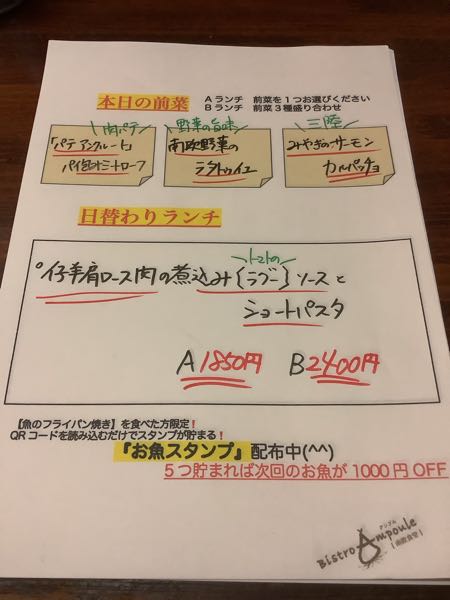 本日の前菜
Aランチ 前菜を1つお選びください
Bランチ 前菜3種盛り合わせ
肉パテ
「パテ アンクルート」
パイ包みミートローフ
野菜の旨味
南欧野菜の
ラタトゥイユ
三陸
みやぎのサーモン
カルパッチョ
日替わりランチ
トマトの
仔羊肩ロース肉の煮込み{ラグー}ソースと
ショートパスタ
A 1850円 B 2400円
【魚のフライパン焼き】を食べた方限定!
QRコードを読み込むだけでスタンプが貯まる!
『お魚スタンプ』配布中(^^)
5つ貯まれば次回のお魚が1000円OFF
アンプル
Bistro Ampoule
[南欧食堂]